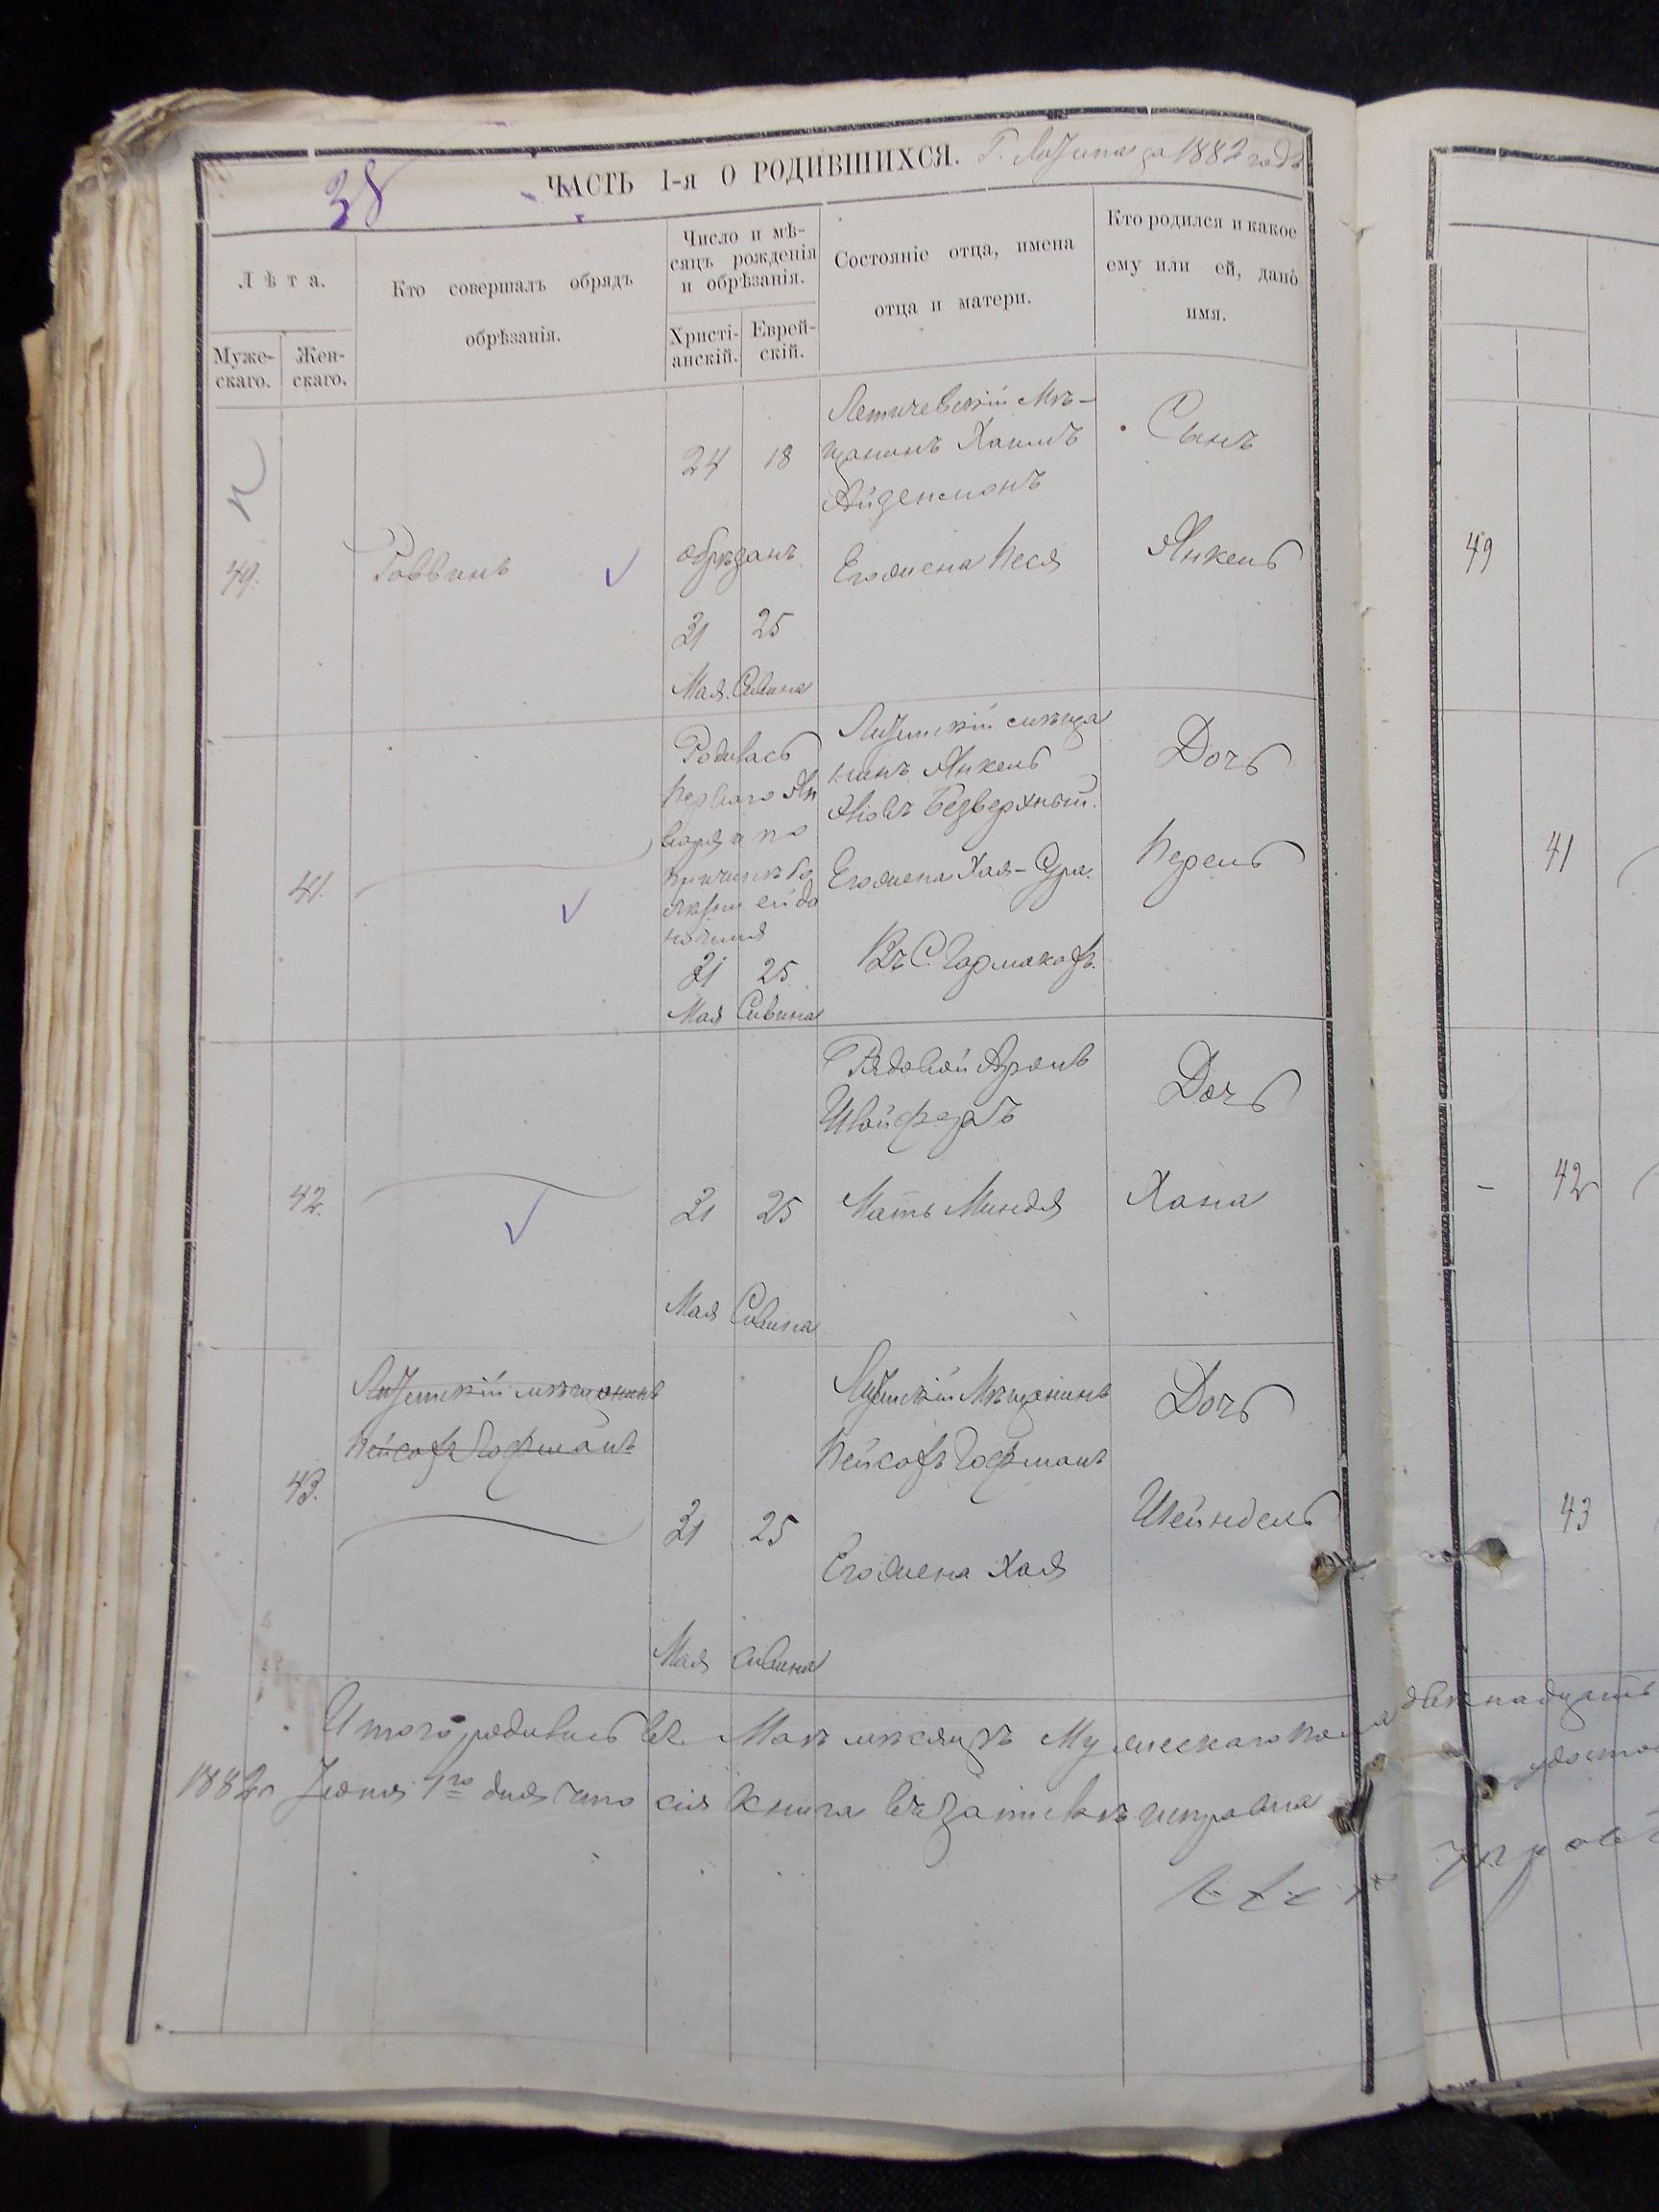 38
ЧАСТЬ I-я О РОДИВШИХСЯ. Г. Литина за 1882 годъ
Лѣта.
Муже-
скаго.
Жен-
скаго.
Кто совершалъ обрядъ
обрѣзанія.
Число и мѣ-
сяцъ рожденія
и обрѣзанія.
Христі-
анскій.
Еврей-
скій.
Состояніе отца, имена
отца и матери.
Кто родился и какое
ему или ей, дано
имя.
49.
Раввинъ
24 18
обрѣзанъ
31 25
Мая Сивана
Летичевскій Мѣ-
щанинъ Хаимъ
Айзенмонъ
Его жена Песя
Сынъ
Янкель
41.
Родилась
перваго Ян
варя а по
причинѣ бо
лѣзни ей да
но имя
31 25
Мая Сивана
Литинскій мѣща
нинъ Янкель
Безверхный.
Его жена Хая-Сура.
Въ С.
Дочь
Перель
42.
31 25
Мая Сивана
Рядовой Аронъ
Мать Миндля
Дочь
Хана
43.
Литинскій мѣщанинъ
Пейсахъ Гофманъ
31 25
Мая Сивана
Литинскій Мѣщанинъ
Пейсахъ Гофманъ
Его жена Хая
Дочь
Шейндель
Итого родилось въ Маѣ мѣсяцѣ Мужескаго пола
1882 г Іюня 1го дня что сія книга въ запискѣ исправна
49
41
- 42
43
двѣнадцать